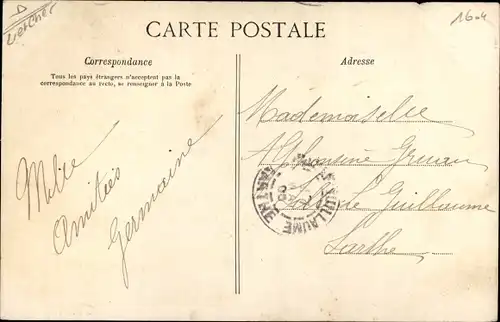 Loir et Cher
16-4
CARTE POSTALE
Correspondance
Tous les pays étrangers n'acceptent pas la
correspondance au recto, se renseigner à la Poste
Mille
Amitiés
Germaine
Adresse
Mademoiselle
Alphonsine
Guillaume
Sarthe
GUILLAUME
SARTHE